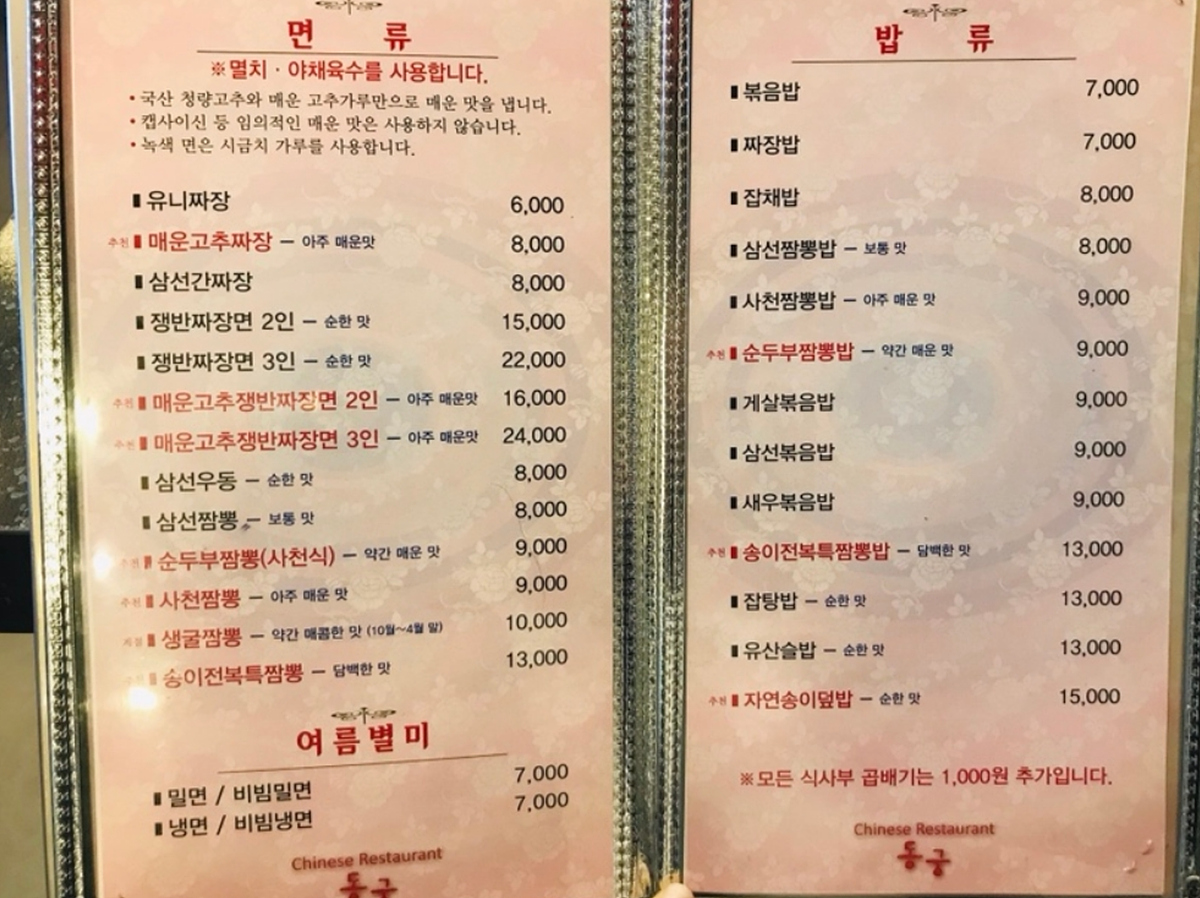 면 류
※멸치 · 야채육수를 사용합니다.
• 국산 청량고추와 매운 고추가루만으로 매운 맛을 냅니다.
• 캡사이신 등 임의적인 매운 맛은 사용하지 않습니다.
• 녹색 면은 시금치 가루를 사용합니다.
유니짜장 6,000
추천 매운고추짜장 – 아주 매운맛 8,000
삼선간짜장 8,000
쟁반짜장면 2인 – 순한 맛 15,000
쟁반짜장면 3인 – 순한 맛 22,000
추천 매운고추쟁반짜장면 2인 – 아주 매운맛 16,000
추천 매운고추쟁반짜장면 3인 – 아주 매운맛 24,000
삼선우동 – 순한 맛 8,000
삼선짬뽕 – 보통 맛 8,000
추천 순두부짬뽕(사천식) – 약간 매운 맛 9,000
추천 사천짬뽕 – 아주 매운 맛 9,000
계절 생굴짬뽕 – 약간 매콤한 맛 (10월~4월 말) 10,000
송이전복특짬뽕 – 담백한 맛 13,000
여름별미
밀면 / 비빔밀면 7,000
냉면 / 비빔냉면 7,000
Chinese Restaurant
동궁
밥 류
볶음밥 7,000
짜장밥 7,000
잡채밥 8,000
삼선짬뽕밥 – 보통 맛 8,000
사천짬뽕밥 – 아주 매운 맛 9,000
추천 순두부짬뽕밥 – 약간 매운 맛 9,000
게살볶음밥 9,000
삼선볶음밥 9,000
새우볶음밥 9,000
추천 송이전복특짬뽕밥 – 담백한 맛 13,000
잡탕밥 – 순한 맛 13,000
유산슬밥 – 순한 맛 13,000
추천 자연송이덮밥 – 순한 맛 15,000
※모든 식사부 곱배기는 1,000원 추가입니다.
Chinese Restaurant
동궁